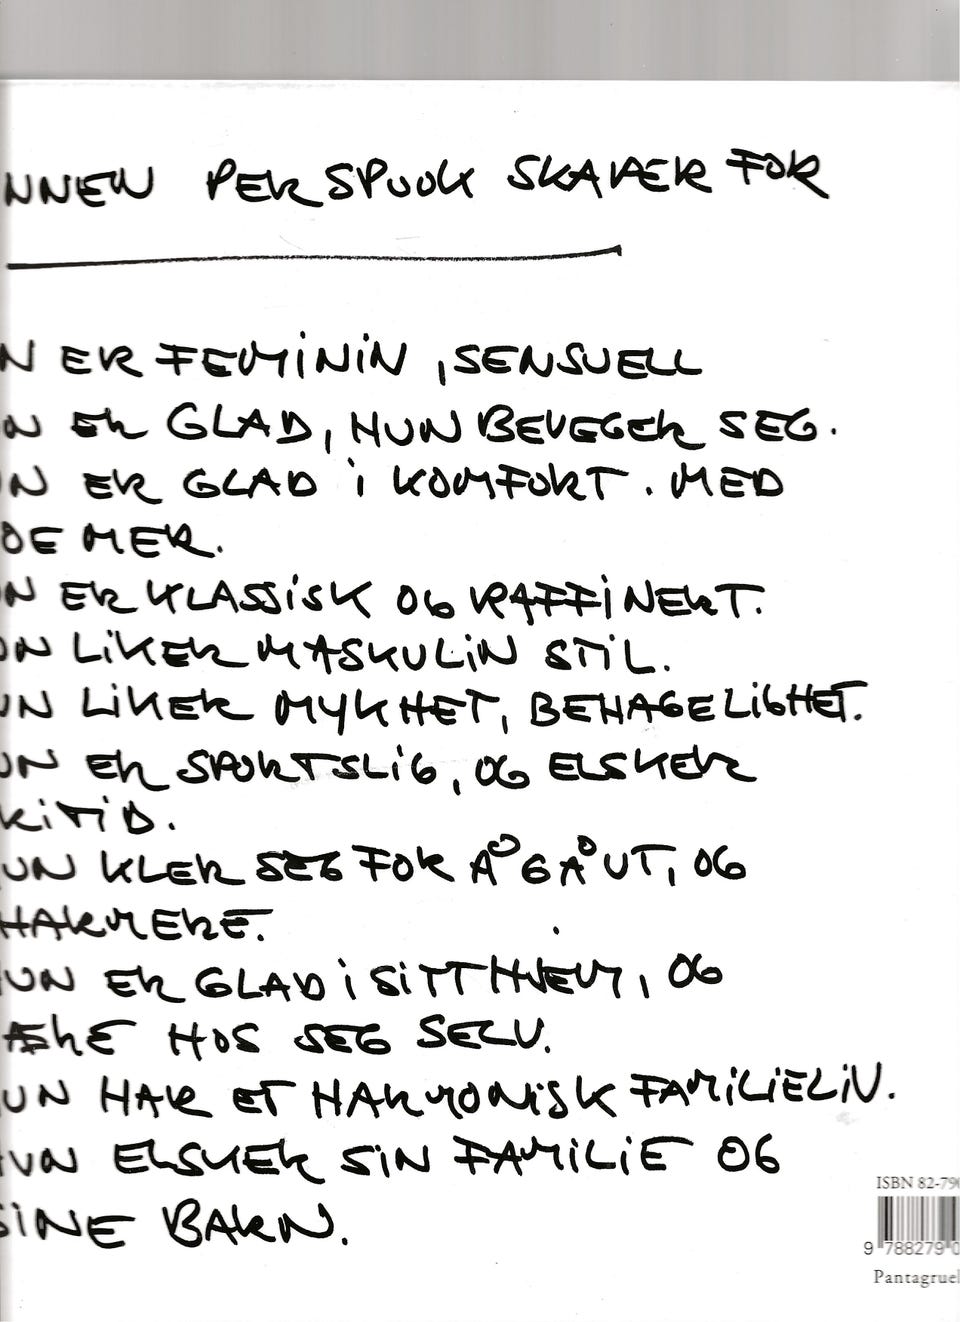 NNEN PER SPOOK SKAPER FOR
N ER FEMININ, SENSUELL
UN ER GLAD, HUN BEVEGER SEG.
UN ER GLAD I KOMFORT. MED
OE MER.
UN ER KLASSISK OG RAFFINERT.
UN LIKER MASKULIN STIL.
UN LIKER MYKHET, BEHAGELIGHET.
UN ER SPORTSLIG, OG ELSKER
KITID.
UN KLER SEG FOR Å GÅ UT, OG
HARMERE.
UN ER GLAD I SITT HJEM, OG
ÆRE HOS SEG SELV.
UN HAR ET HARMONISK FAMILIELIV.
HUN ELSKER SIN FAMILIE OG
SINE BARN.
ISBN 82-790
9 788279 0
Pantagruel